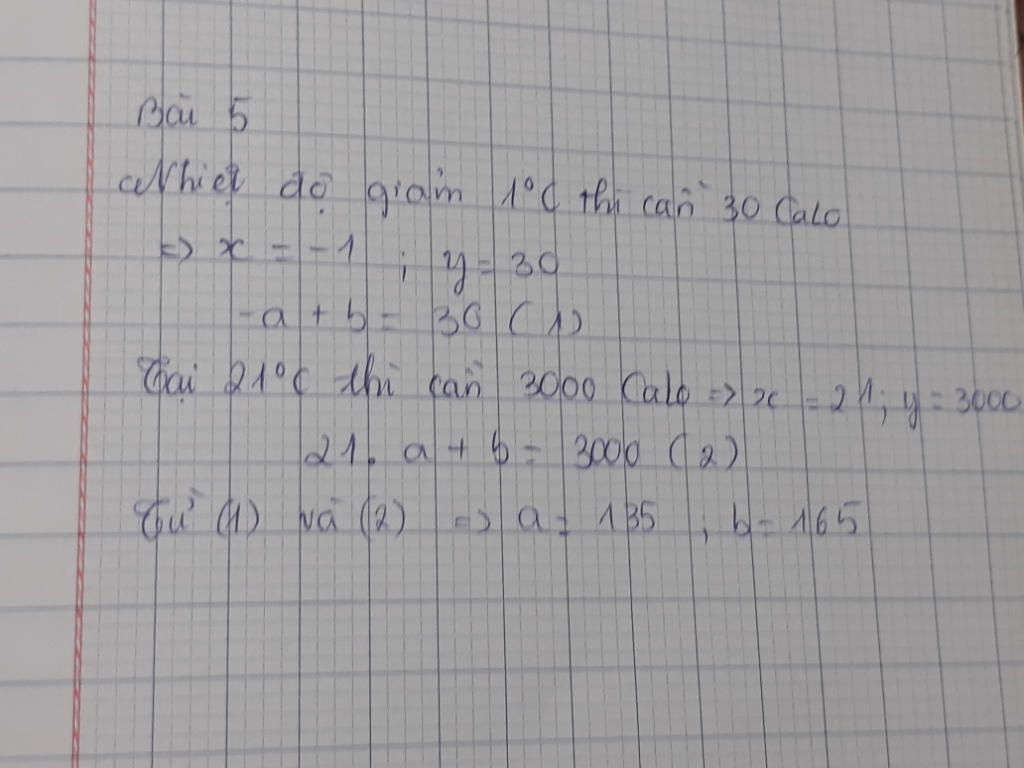 Bài 5
Nhiệt độ giảm 1°C thì cần 30 Calo
=> x = -1 ; y = 30
-a + b = 30 (1)
Tại 21°C thì cần 3000 Calo => x = 21; y = 3000
21. a + b = 3000 (2)
Từ (1) và (2) => a = 135 ; b = 165